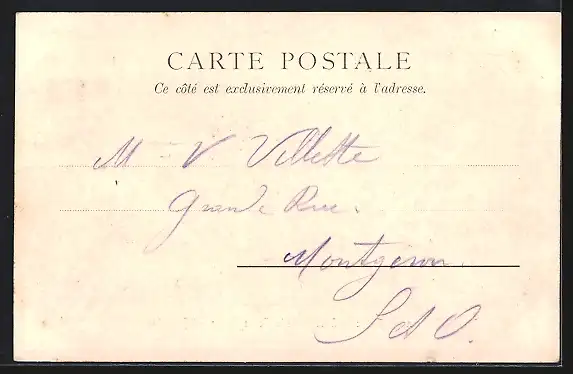 CARTE POSTALE
Ce côté est exclusivement réservé à l'adresse.
M V. Villette
Grande Rue.
Montgeron.
S et O.